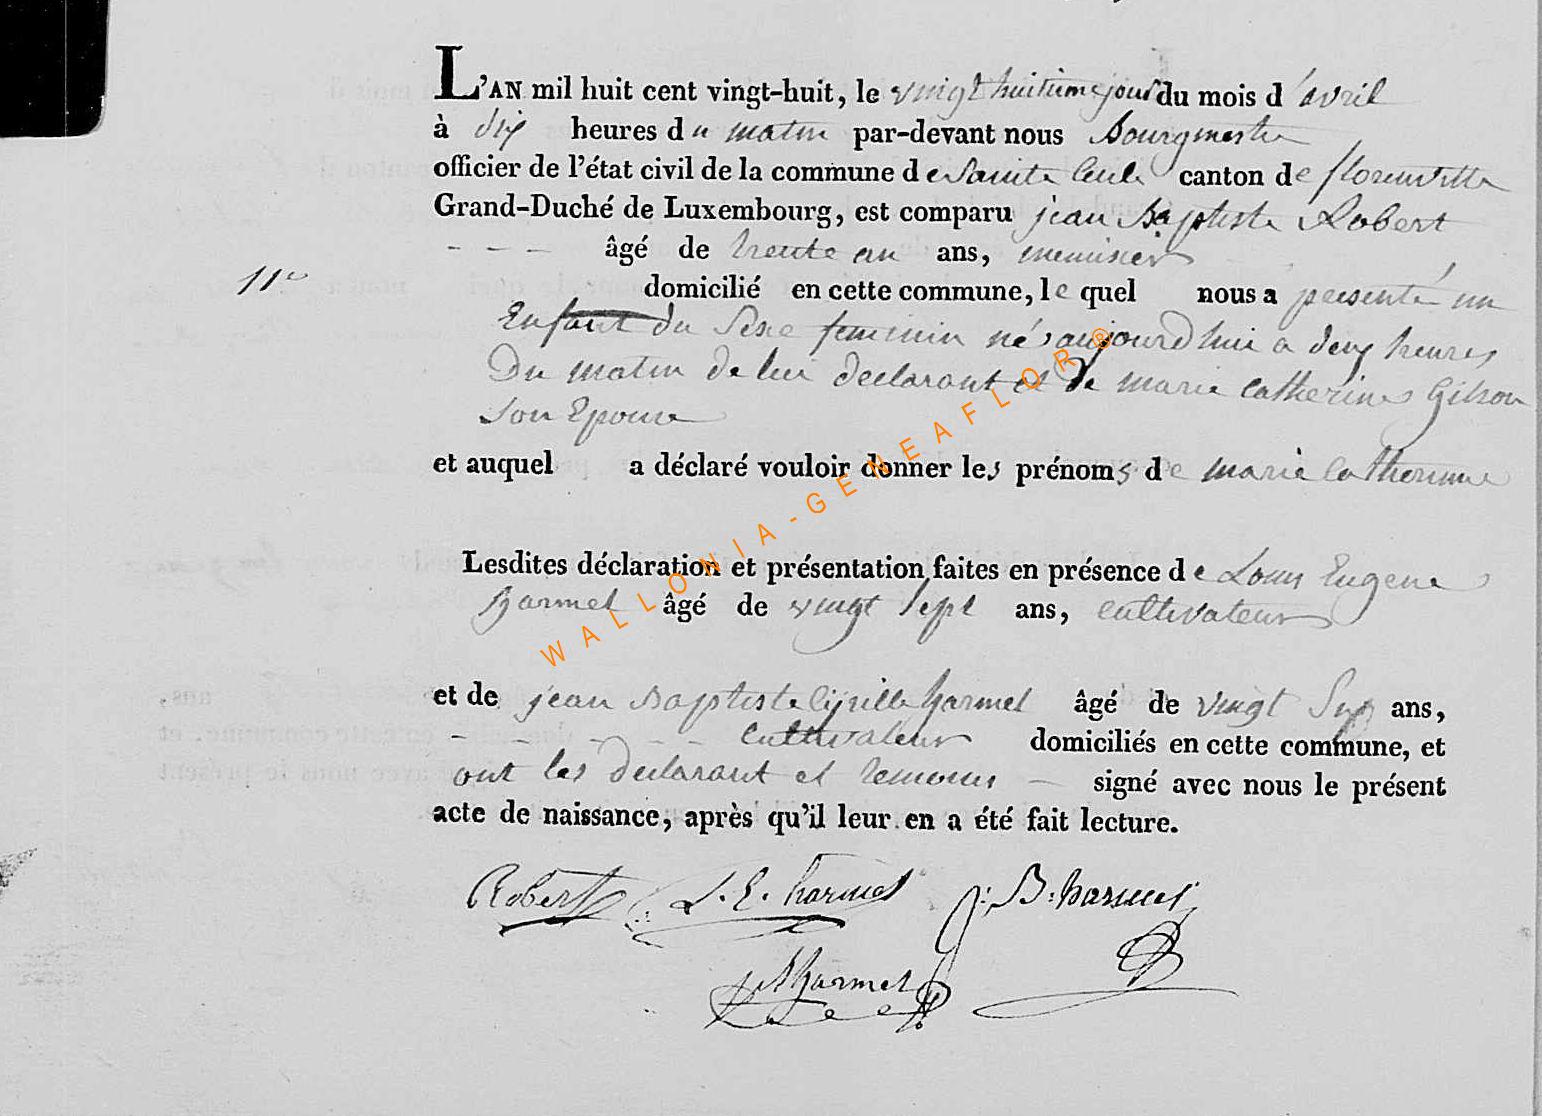 L'AN mil huit cent vingt-huit, le vingt huitieme jour du mois d'avril
à dix heures du matin par-devant nous Bourgmestre
officier de l'état civil de la commune de Sainte Cecile canton de florenville
Grand-Duché de Luxembourg, est comparu jean Baptiste Robert
- - - âgé de trente un ans, menuisier
11e domicilié en cette commune, le quel nous a presenté un
Enfant du Sexe feminin né aujourd'hui a deux heures
Du matin de lui declarant et de marie Catherine Gilson
Son Epouse
et auquel a déclaré vouloir donner les prénoms de marie Catherinne
Lesdites déclaration et présentation faites en présence de Louis Eugene
harmel âgé de vingt sept ans, cultivateur
et de jean Baptiste Cirille harmel âgé de vingt Six ans,
- - - - - - cultivateur domiciliés en cette commune, et
ont les declarant et temoins - signé avec nous le présent
acte de naissance, après qu'il leur en a été fait lecture.
Robert L. E. harmel j: B: harmel
harmel
WALLONIA-GENEAFLOR®